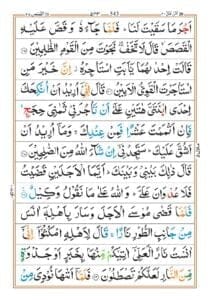 ۵۴۳
اَجْرَ مَا سَقَيْتَ لَنَا ؕ فَلَمَّا جَآءَهٗ وَ قَصَّ عَلَيْهِ
الْقَصَصَ ۙ قَالَ لَا تَخَفْ نَجَوْتَ مِنَ الْقَوْمِ الظّٰلِمِيْنَ
قَالَتْ اِحْدٰىهُمَا يٰۤاَبَتِ اسْتَاْجِرْهُ اِنَّ خَيْرَ مَنِ
اسْتَاْجَرْتَ الْقَوِيُّ الْاَمِيْنُ قَالَ اِنِّيْۤ اُرِيْدُ اَنْ اُنْكِحَكَ
اِحْدَى ابْنَتَيَّ هٰتَيْنِ عَلٰۤى اَنْ تَاْجُرَنِيْ ثَمٰنِيَ حِجَجٍ ۚ
فَاِنْ اَتْمَمْتَ عَشْرًا فَمِنْ عِنْدِكَ ۚ وَ مَاۤ اُرِيْدُ اَنْ
اَشُقَّ عَلَيْكَ ؕ سَتَجِدُنِيْۤ اِنْ شَآءَ اللّٰهُ مِنَ الصّٰلِحِيْنَ
قَالَ ذٰلِكَ بَيْنِيْ وَ بَيْنَكَ ؕ اَيَّمَا الْاَجَلَيْنِ قَضَيْتُ
فَلَا عُدْوَانَ عَلَيَّ ؕ وَ اللّٰهُ عَلٰى مَا نَقُوْلُ وَكِيْلٌ
فَلَمَّا قَضٰى مُوْسَى الْاَجَلَ وَ سَارَ بِاَهْلِهٖۤ اٰنَسَ
مِنْ جَانِبِ الطُّوْرِ نَارًا ۚ قَالَ لِاَهْلِهِ امْكُثُوْۤا
اِنِّيْۤ اٰنَسْتُ نَارًا لَّعَلِّيْۤ اٰتِيْكُمْ مِّنْهَا بِخَبَرٍ اَوْ جَذْوَةٍ
مِّنَ النَّارِ لَعَلَّكُمْ تَصْطَلُوْنَ فَلَمَّاۤ اَتٰىهَا نُوْدِيَ